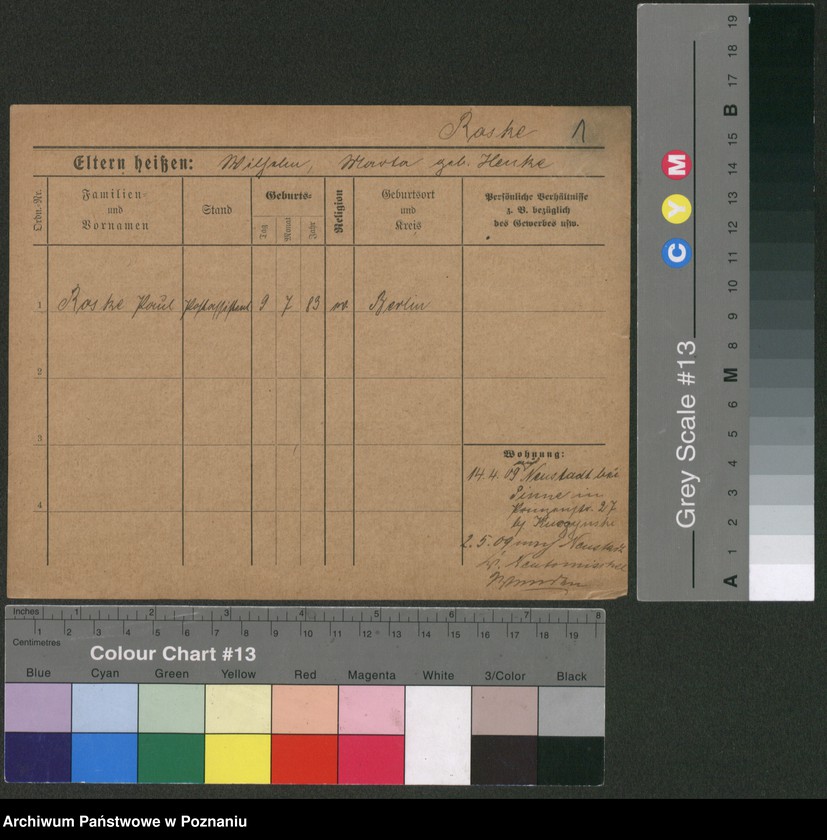 Roske 1
Eltern heißen: Wilhelm, Marta geb. Henke
Ordn.-Nr.
Familien- und Vornamen
Stand
Geburts-
Tag
Monat
Jahr
Religion
Geburtsort und Kreis
Persönliche Verhältnisse
z. B. bezüglich
des Gewerbes usw.
1 Roske Paul Postassistent 9 7 83 ev Berlin
2
3
4
Wohnung:
14.4.09 Neustadt bei
Pinne in
27
2.5.09 Neustadt
Grey Scale #13
C Y M
A 1 2 3 4 5 6 M 8 9 10 11 12 13 14 15 B 17 18 19
Inches 1 2 3 4 5 6 7 8
Centimetres 1 2 3 4 5 6 7 8 9 10 11 12 13 14 15 16 17 18 19
Colour Chart #13
Blue Cyan Green Yellow Red Magenta White 3/Color Black
Archiwum Państwowe w Poznaniu